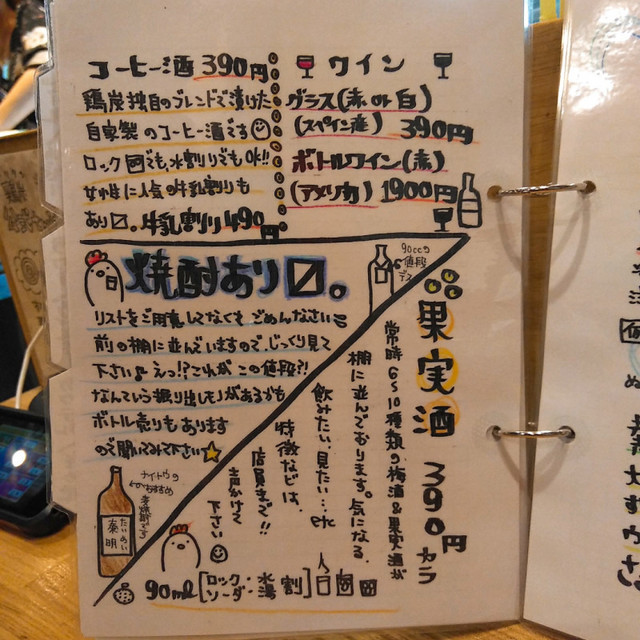 コーヒー酒 390円
鶏炭独自のブレンドで漬けた
自家製のコーヒー酒です
ロックでも、水割りでもOK!!
女性に人気の牛乳割りも
あり〼。牛乳割り490円
ワイン
グラス(赤 or 白)
(スペイン産) 390円
ボトルワイン(赤)
(アメリカ) 1900円
焼酎あり〼。
リストをご用意してなくてごめんなさい
前の棚に並んでいますので、じっくり見て
下さい♪ えっ!?これがこの値段?!
なんという掘り出しモノがあるかも
ボトル売りもあります
ので聞いてみて下さい
90ccの
値段
デス
果実酒 390円カラ
常時6〜10種類の梅酒&果実酒が
棚に並んでおります。気になる、
飲みたい、見たい…etc
特徴などは、
店員まで!!
声かけて
下さい
ナイトウの
おすすめ
芋焼酎です
たいめい
泰明
90ml [ロック・水
ソーダ・湯 割]